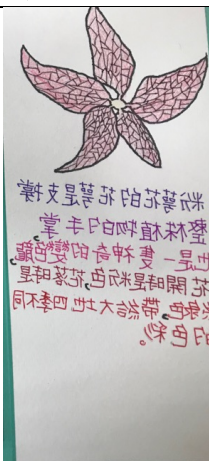 粉萼花的花萼是支撐
整株植物的手掌,
也是一隻神奇的變色龍,
花開時是粉色,花落時是
綠色,帶給大地四季不同
的色彩。